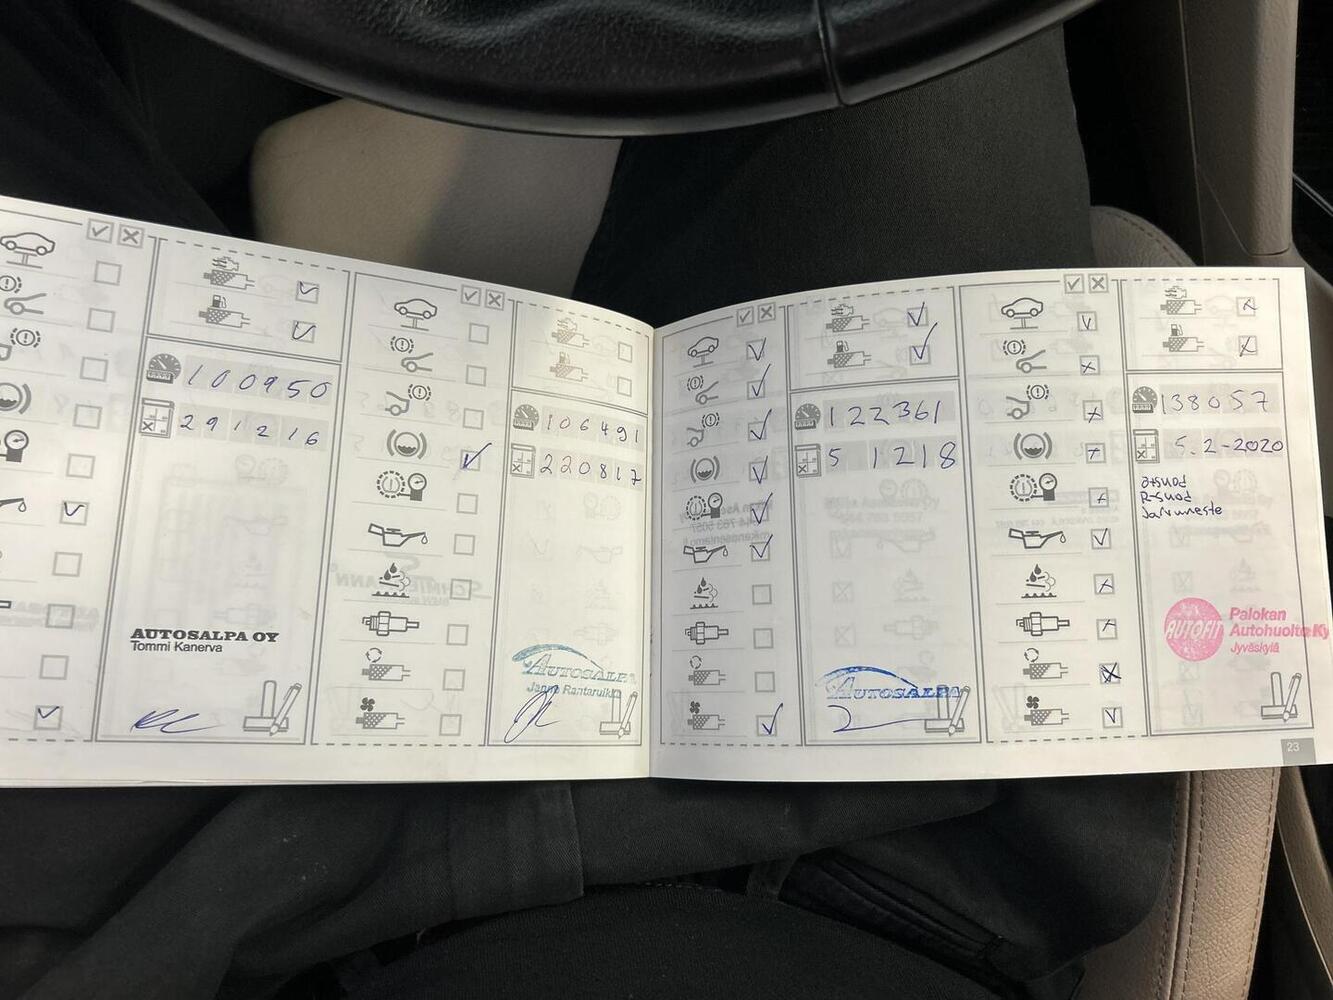 100950
291216
AUTOSALPA OY
Tommi Kanerva
106491
220817
AUTOSALPA
Janne Rantaruikka
122361
5 1218
AUTOSALPA
138057
5.2-2020
Jarruneste
AUTOFIT
Palokan
Autohuolto Ky
Jyväskylä
23